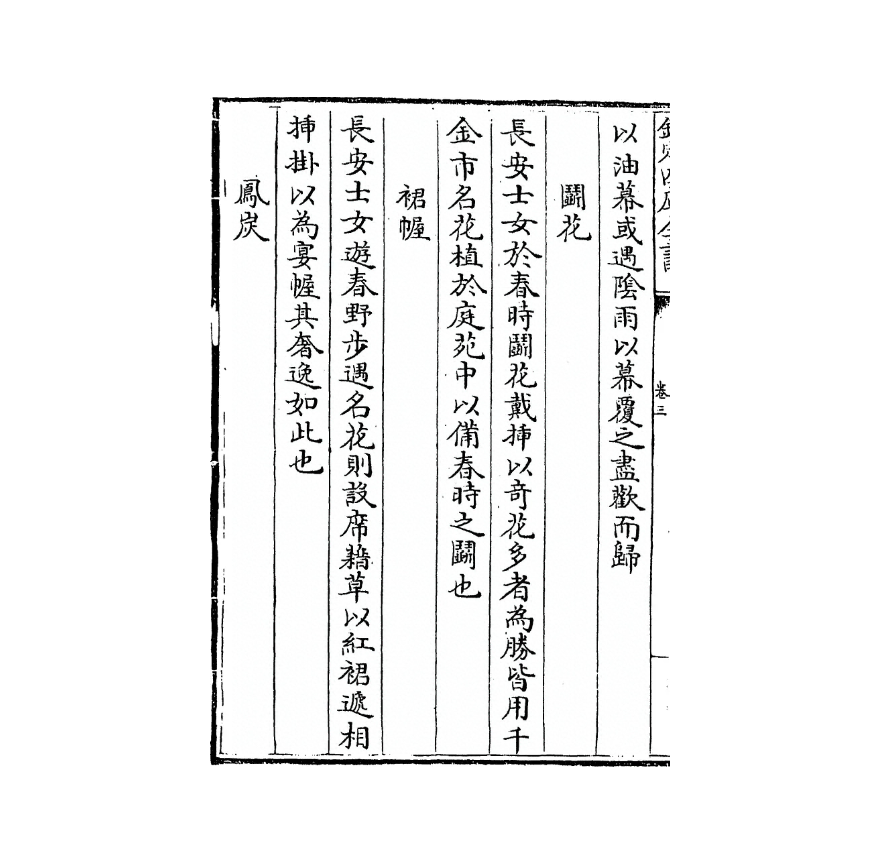 欽定四庫全書
卷三
以油幕或遇隂雨以幕覆之盡歡而歸
鬭花
長安士女於春時鬭花戴揷以竒花多者為勝皆用千
金市名花植於庭苑中以備春時之鬭也
裙幄
長安士女遊春野步遇名花則設席藉草以紅裙遞相
揷掛以為宴幄其奢逸如此也
鳳炭